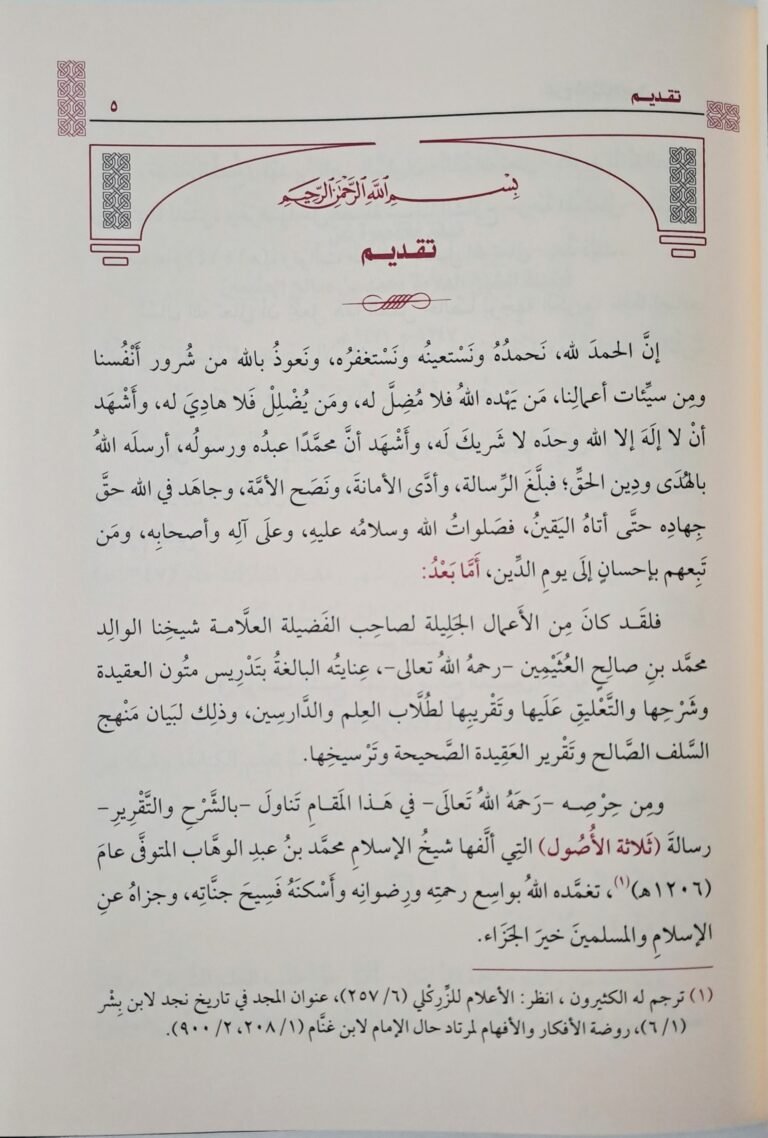 تقديم
٥
بِسْمِ اللَّهِ الرَّحْمَنِ الرَّحِيمِ
تقديم
إنَّ الحمدَ لله، نَحمدُهُ ونَسْتعينُه ونَسْتغفرُه، ونَعوذُ بالله من شُرور أَنْفُسنا
ومِن سيِّئات أعمالِنا، مَن يَهْده اللهُ فلا مُضِلَّ له، ومَن يُضْلِلْ فَلا هادِيَ له، وأَشْهَد
أنْ لا إلَهَ إلا الله وحدَه لا شَريكَ لَه، وأَشْهَد أنَّ محمَّدًا عبدُه ورسولُه، أرسلَه اللهُ
بالهُدَى ودِين الحقِّ؛ فبلَّغَ الرِّسالة، وأدَّى الأمانةَ، ونَصَح الأمَّة، وجاهَد في الله حقَّ
جِهاده حتَّى أتاهُ اليَقينُ، فصَلواتُ الله وسلامُه عليهِ، وعلَى آلِه وأصحابِه، ومَن
تَبِعهم بإحسانٍ إلَى يومِ الدِّين، أَمَّا بَعْدُ:
فلقَد كانَ مِن الأَعمال الجَلِيلة لصاحِب الفَضيلة العلَّامة شيخِنا الوالِد
محمَّد بنِ صالِحٍ العُثَيْمِين -رحمهُ اللهُ تعالى-، عِنايتُه البالغةُ بتَدْرِيس متُون العقيدة
وشَرْحِها والتَّعْليقِ عَلَيها وتَقْريبِها لطُلَّاب العِلم والدَّارسِين، وذلِك لبَيان مَنْهج
السَّلف الصَّالح وتَقْرير العَقِيدة الصَّحيحة وتَرْسيخِها.
ومِن حِرْصِه -رَحمَهُ اللهُ تَعالَى- في هَذا المَقامِ تَناولَ -بالشَّرْحِ والتَّقْرِيرِ-
رسالةَ (ثَلاثة الأُصُول) التِي ألَّفها شيخُ الإسلامِ محمَّد بنُ عبدِ الوهَّاب المتوفَّى عامَ
(١٢٠٦هـ)(١)، تغمَّده اللهُ بواسِع رحمتِه ورِضوانِه وأَسْكنَهُ فَسِيحَ جنَّاتِه، وجزاهُ عنِ
الإسلامِ والمسلمينَ خيرَ الجَزَاء.
(١) ترجم له الكثيرون ، انظر: الأعلام للزِّرِكْلي (٦/ ٢٥٧)، عنوان المجد في تاريخ نجد لابن بِشْر
(١/ ٦)، روضة الأفكار والأفهام لمرتاد حال الإمام لابن غنَّام (١/ ٢٠٨، ٢/ ٩٠٠).